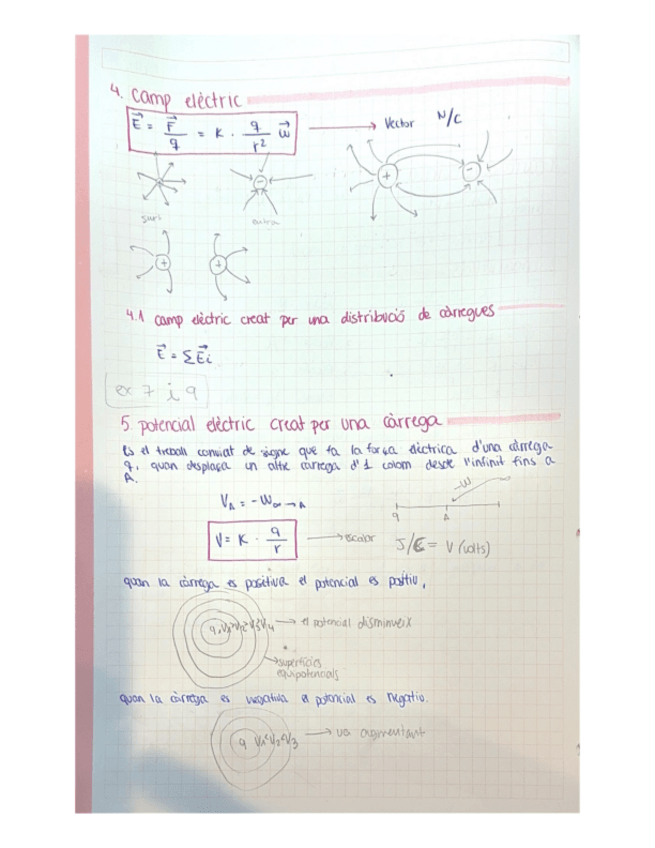 4. Camp elèctric
E⃗ = F⃗/q = K · q/r² u⃗ → Vector N/C
+ -
surt entra
+ +
4.1 camp elèctric creat per una distribució de càrregues
E⃗ = ΣE⃗i
ex 7 i 9
5. potencial elèctric creat per una càrrega
Es el treball canviat de signe que fa la força elèctrica d'una càrrega
q, quan desplaça un altre càrrega d'1 colom desde l'infinit fins a
A.
-W
V_A = -W∞→A
q A
V = K · q/r → escalar J/C = V (volts)
quan la càrrega es positiva el potencial es positiu,
q V1>V2>V3>V4 → el potencial disminueix
→ superfícies
equipotencials
quan la càrrega es negativa el potencial es negatiu.
q V1<V2<V3 → va augmentant